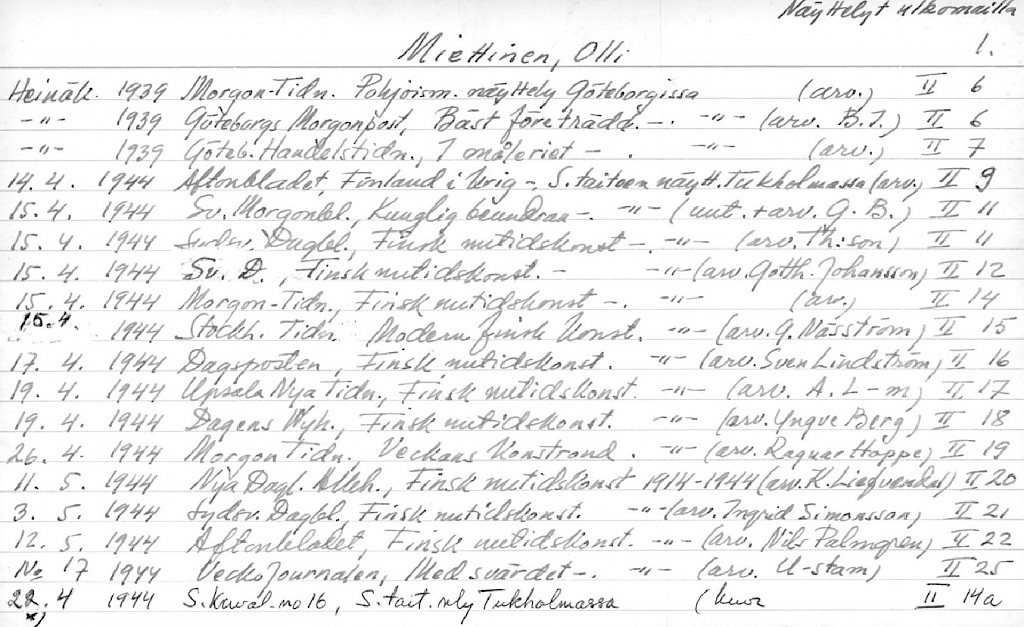 Näyttelyt ulkomailla
1.
Miettinen, Olli
Heinäk. 1939 Morgon-Tidn. Pohjoism. näyttely Göteborgissa (arv.) II 6
-"- 1939 Göteborgs Morgonpost, Bäst företrädd. -. -"- (arv. B.J.) II 6
-"- 1939 Göteb. Handelstidn., I måleriet - . -"- (arv.) II 7
14.4. 1944 Aftonbladet, Finland i krig -, S.taiteen näytt. Tukholmassa (arv.) II 9
15.4. 1944 Sv. Morgonbl., Kunglig beundran -. -"- (uut. + arv. G. B.) II 11
15.4. 1944 Sydsv. Dagbl., Finsk nutidskonst -. -"- (arv. Th:son) II 11
15.4. 1944 Sv. D., Finsk nutidskonst. - -"- (arv. Gotth. Johansson) II 12
15.4. 1944 Morgon-Tidn., Finsk nutidskonst -. -"- (arv.) II 14
15.4. 1944 Stockh. Tidn. Modern finsk konst. -"- (arv. G. Näsström) II 15
17.4. 1944 Dagsposten, Finsk nutidskonst. -"- (arv. Sven Lindström) II 16
19.4. 1944 Upsala Nya Tidn., Finsk nutidskonst. -"- (arv. A. L-m) II 17
19.4. 1944 Dagens Nyh., Finsk nutidskonst. -"- (arv. Yngve Berg) II 18
26.4. 1944 Morgon Tidn., Veckans Konstrond. -"- (arv. Ragnar Hoppe) II 19
11.5. 1944 Nya Dagl. Alleh., Finsk nutidskonst 1914-1944 (arv. K. Liegvendal) II 20
3.5. 1944 Sydsv. Dagbl., Finsk nutidskonst. -"- (arv. Ingrid Simonsson) II 21
12.5. 1944 Aftonbladet, Finsk nutidskonst. -"- (arv. Nils Palmgren) II 22
No 17 1944 VeckoJournalen, Med svärdet -. -"- (arv. U-stam) II 25
22.4 1944 S.Kuval. no 16, S.tait. nly Tukholmassa (kuva II 14a
*)